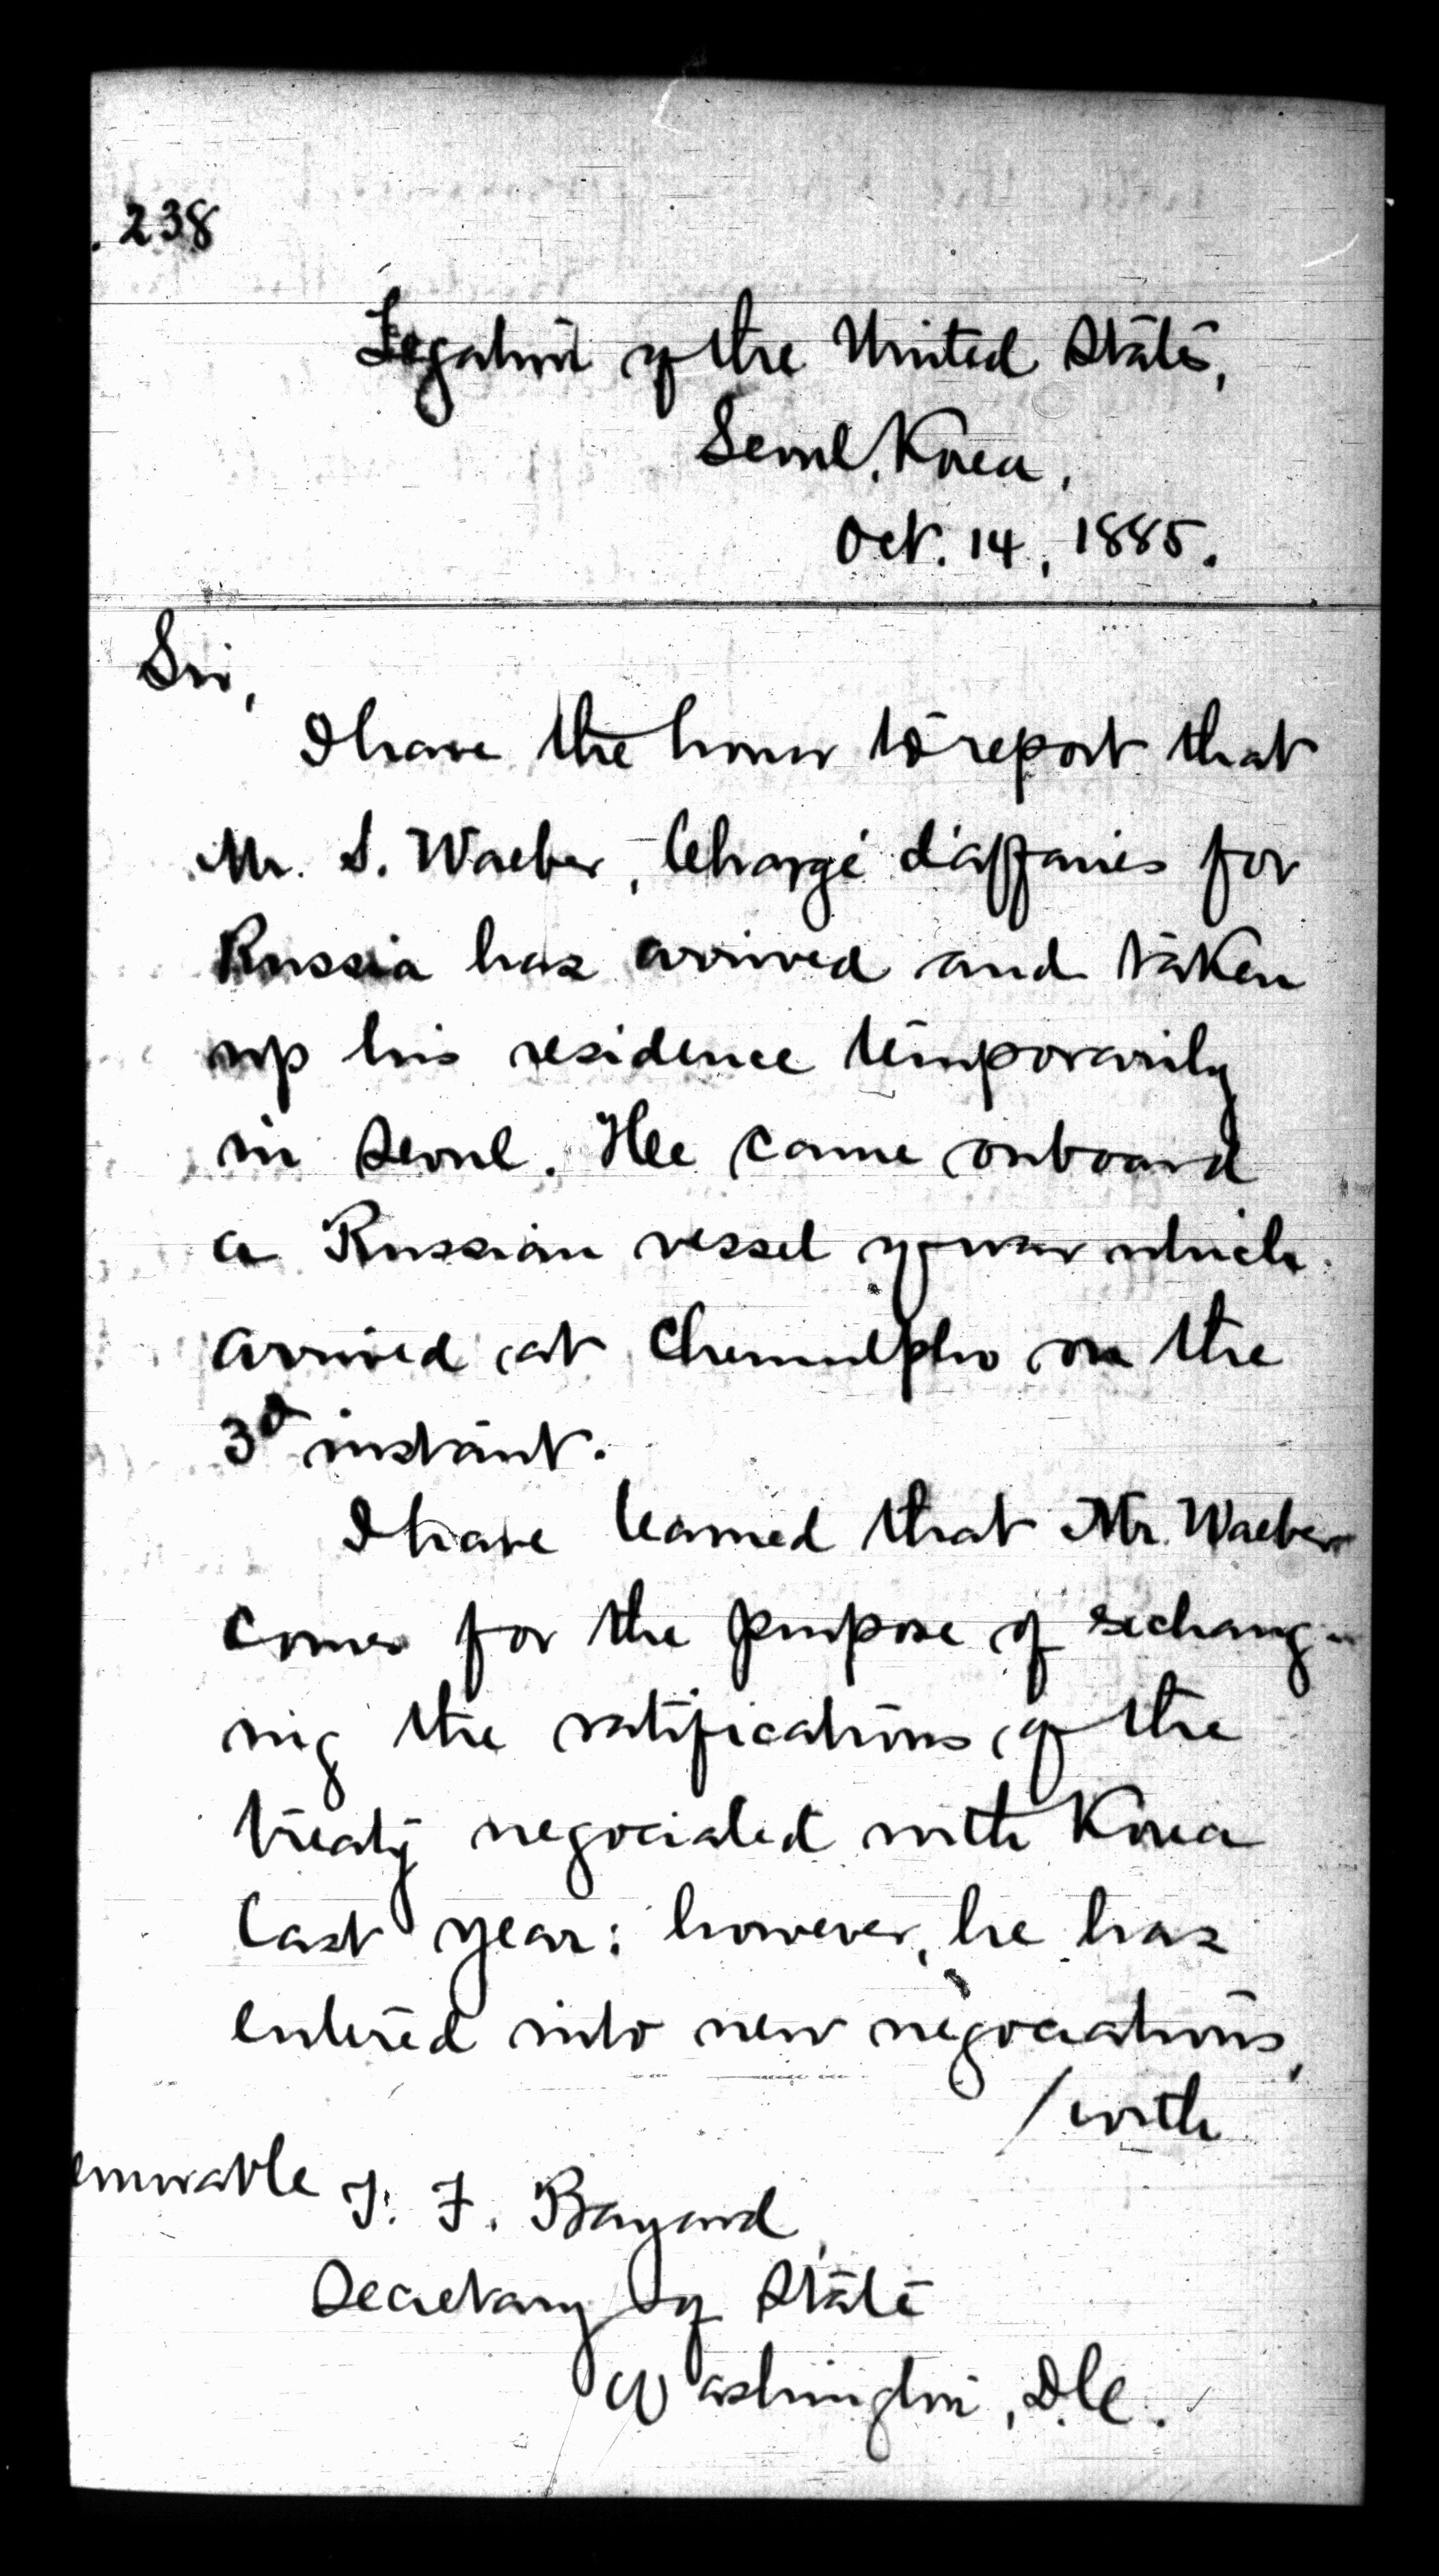 . 238
Legation of the United States,
Seoul, Korea,
Oct. 14, 1885.
Sir,
I have the honor to report that
Mr. S. Waeber, Chargé d'affaires for
Russia has arrived and taken
up his residence temporarily
in Seoul. He came onboard
a Russian vessel of war which
arrived at Chemulpho on the
3d instant.
I have learned that Mr. Waeber
comes for the purpose of exchang-
ing the ratifications of the
treaty negociated with Korea
last year: however, he has
entered into new negociations,
/with
onorable T. F. Bayard,
Secretary of State
Washington, D.C.